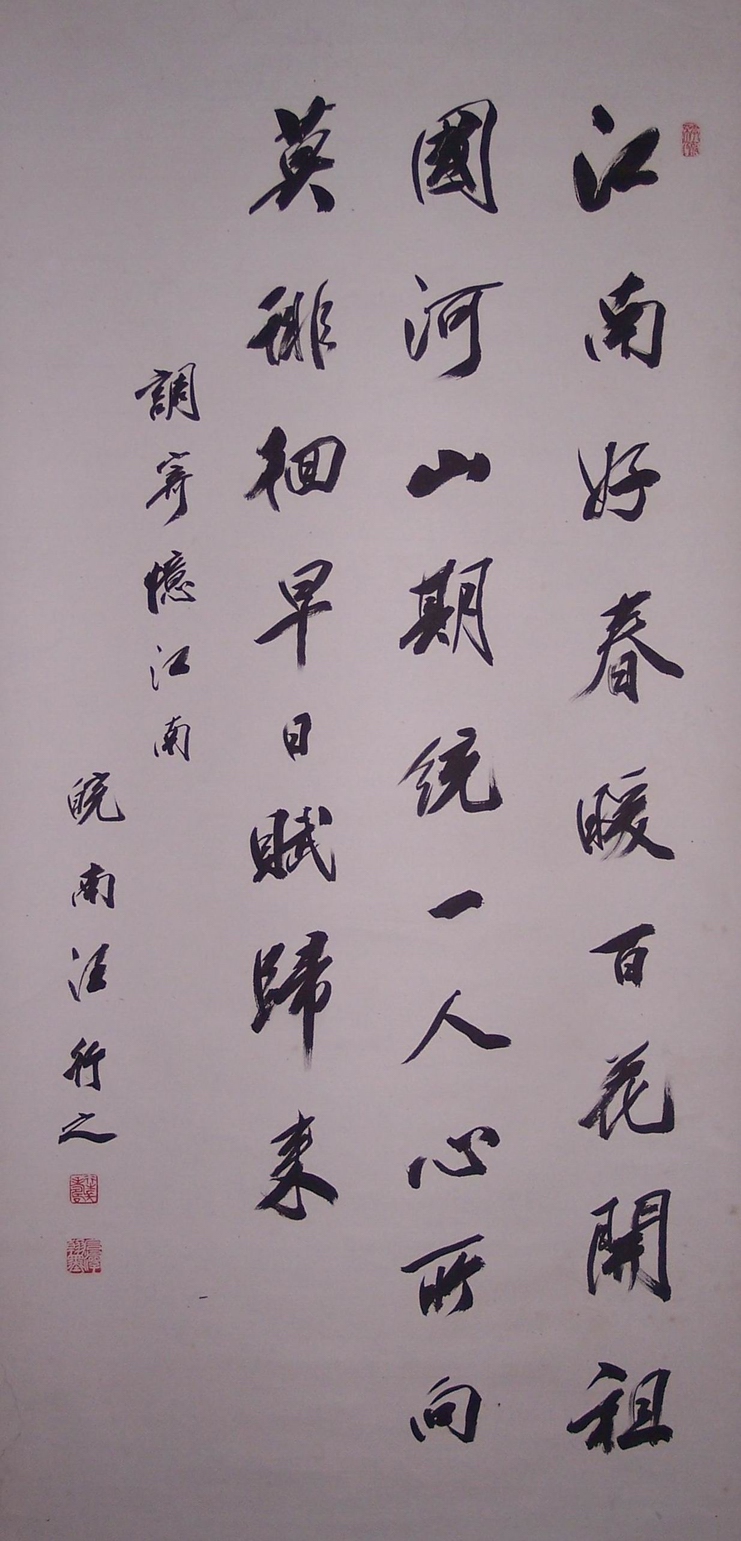 江南好春暖百花開祖
國河山期統一人心所向
莫徘徊早日賦歸來
調寄憶江南
皖南汪行之